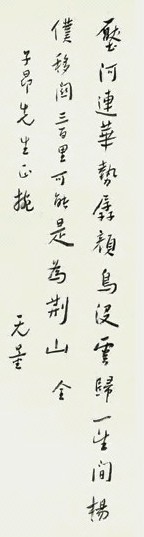 壓河連華勢孱顏鳥沒雲歸一望間楊
僕移關三百里可能是為荊山全
子昂先生正捥
无量